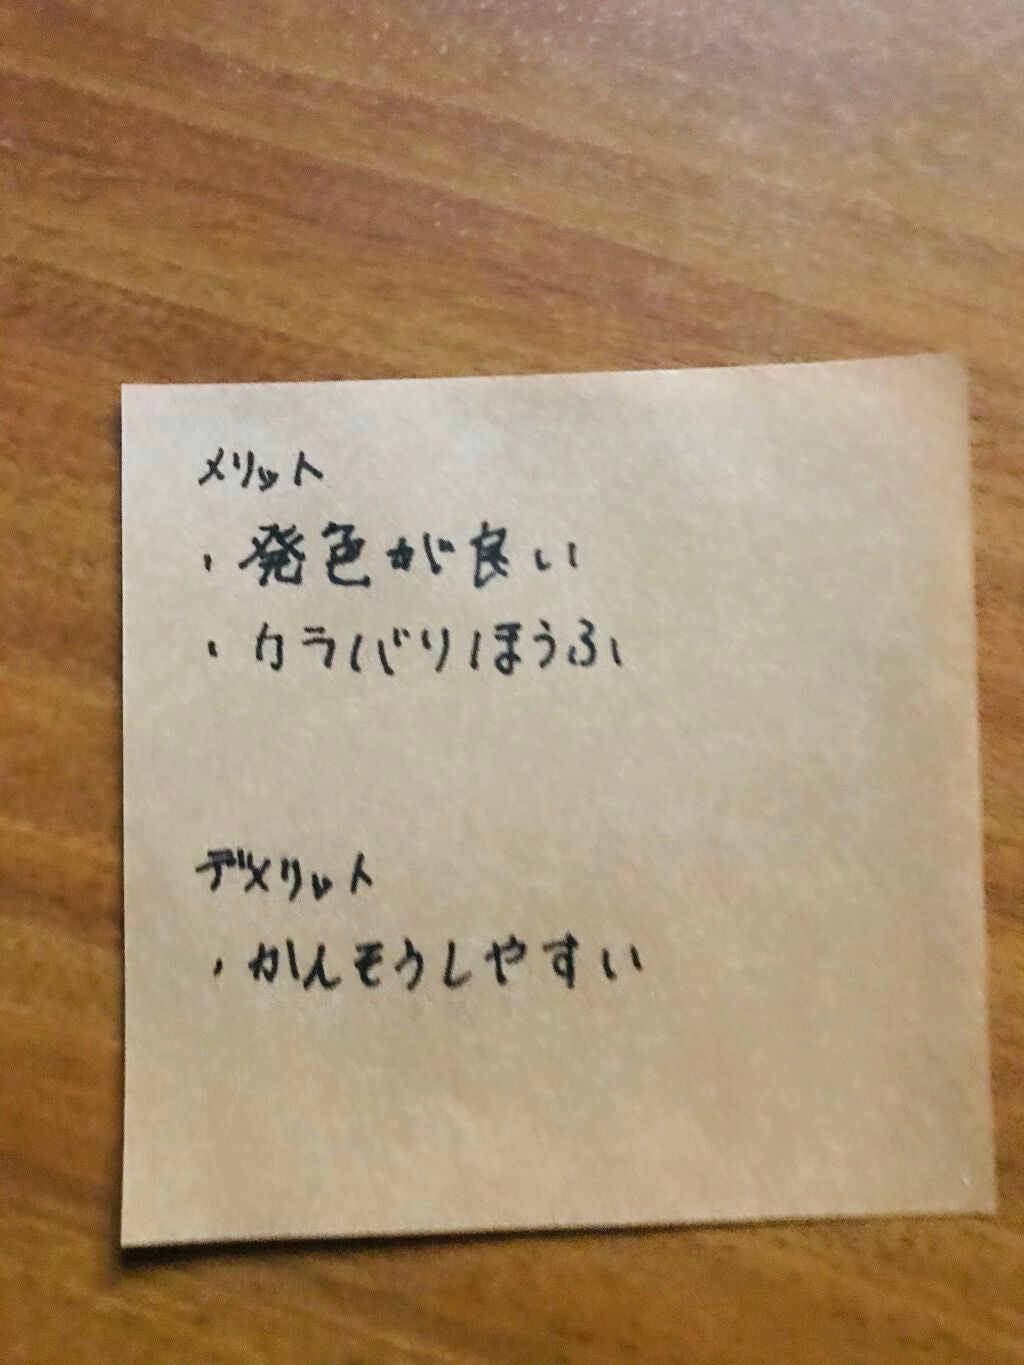 メリット
・発色が良い
・カラバリほうふ
デメリット
・かんそうしやすい